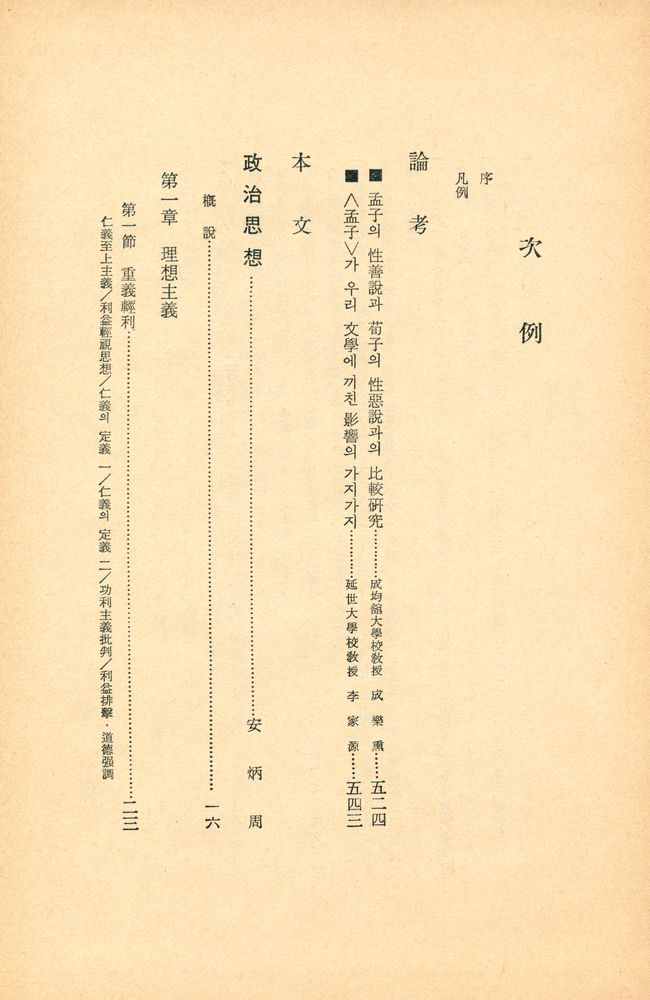 次例
序
凡例
論考
■ 孟子의 性善說과 荀子의 性惡說과의 比較硏究…………成均館大學校敎授 成樂熏……五二四
■ 〈孟子〉가 우리 文學에 끼친 影響의 가지가지…………延世大學校敎授 李家源……五四三
本文
政治思想……………………安炳周
概說……………………一六
第一章 理想主義
第一節 重義輕利……………………二三
仁義至上主義/利益輕視思想/仁義의 定義 一/仁義의 定義 二/功利主義批判/利益排擊·道德强調